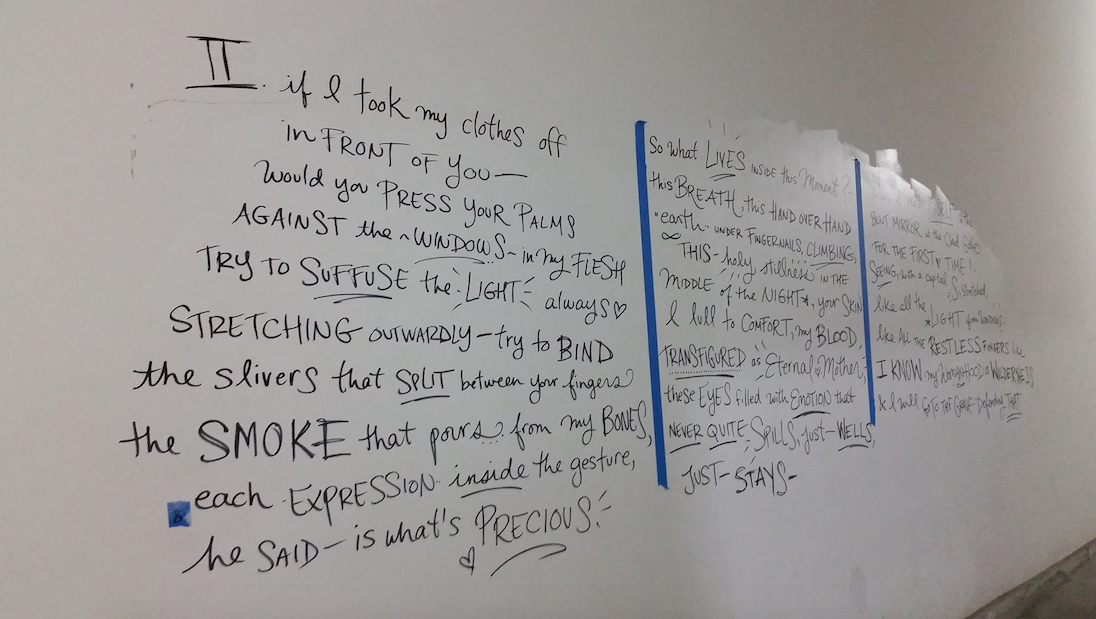 II. if I took my clothes off
in FRONT OF YOU—
Would you PRESS YOUR PALMS
AGAINST the ~WINDOWS~ in my FLESH
TRY TO SUFFUSE the LIGHT always♡
STRETCHING OUTWARDLY—try to BIND
the slivers that SPLIT between your fingers
the SMOKE that pours from my BONES,
each EXPRESSION inside the gesture,
he SAID— is what's PRECIOUS.
So what LIVES INSIDE this Moment?
this BREATH, this HAND OVER HAND
"earth" UNDER FINGERNAILS, CLIMBING,
∞ THIS—holy stillness IN THE
MIDDLE of the NIGHT, your SKIN
I lull to COMFORT, my BLOOD,
TRANSFIGURED as Eternal Mother,
these EYES filled with EMOTION that
NEVER QUITE SPILLS, just—WELLS,
JUST—STAYS—
BENT MIRROR at the
FOR THE FIRST TIME I.
SEEING, with a capital S, stretched
like all the LIGHT from WINDOWS.
like ALL THE RESTLESS FINGERS like
I KNOW my WILDERNESS
& I will GO TO THE GRAVE Defending THAT